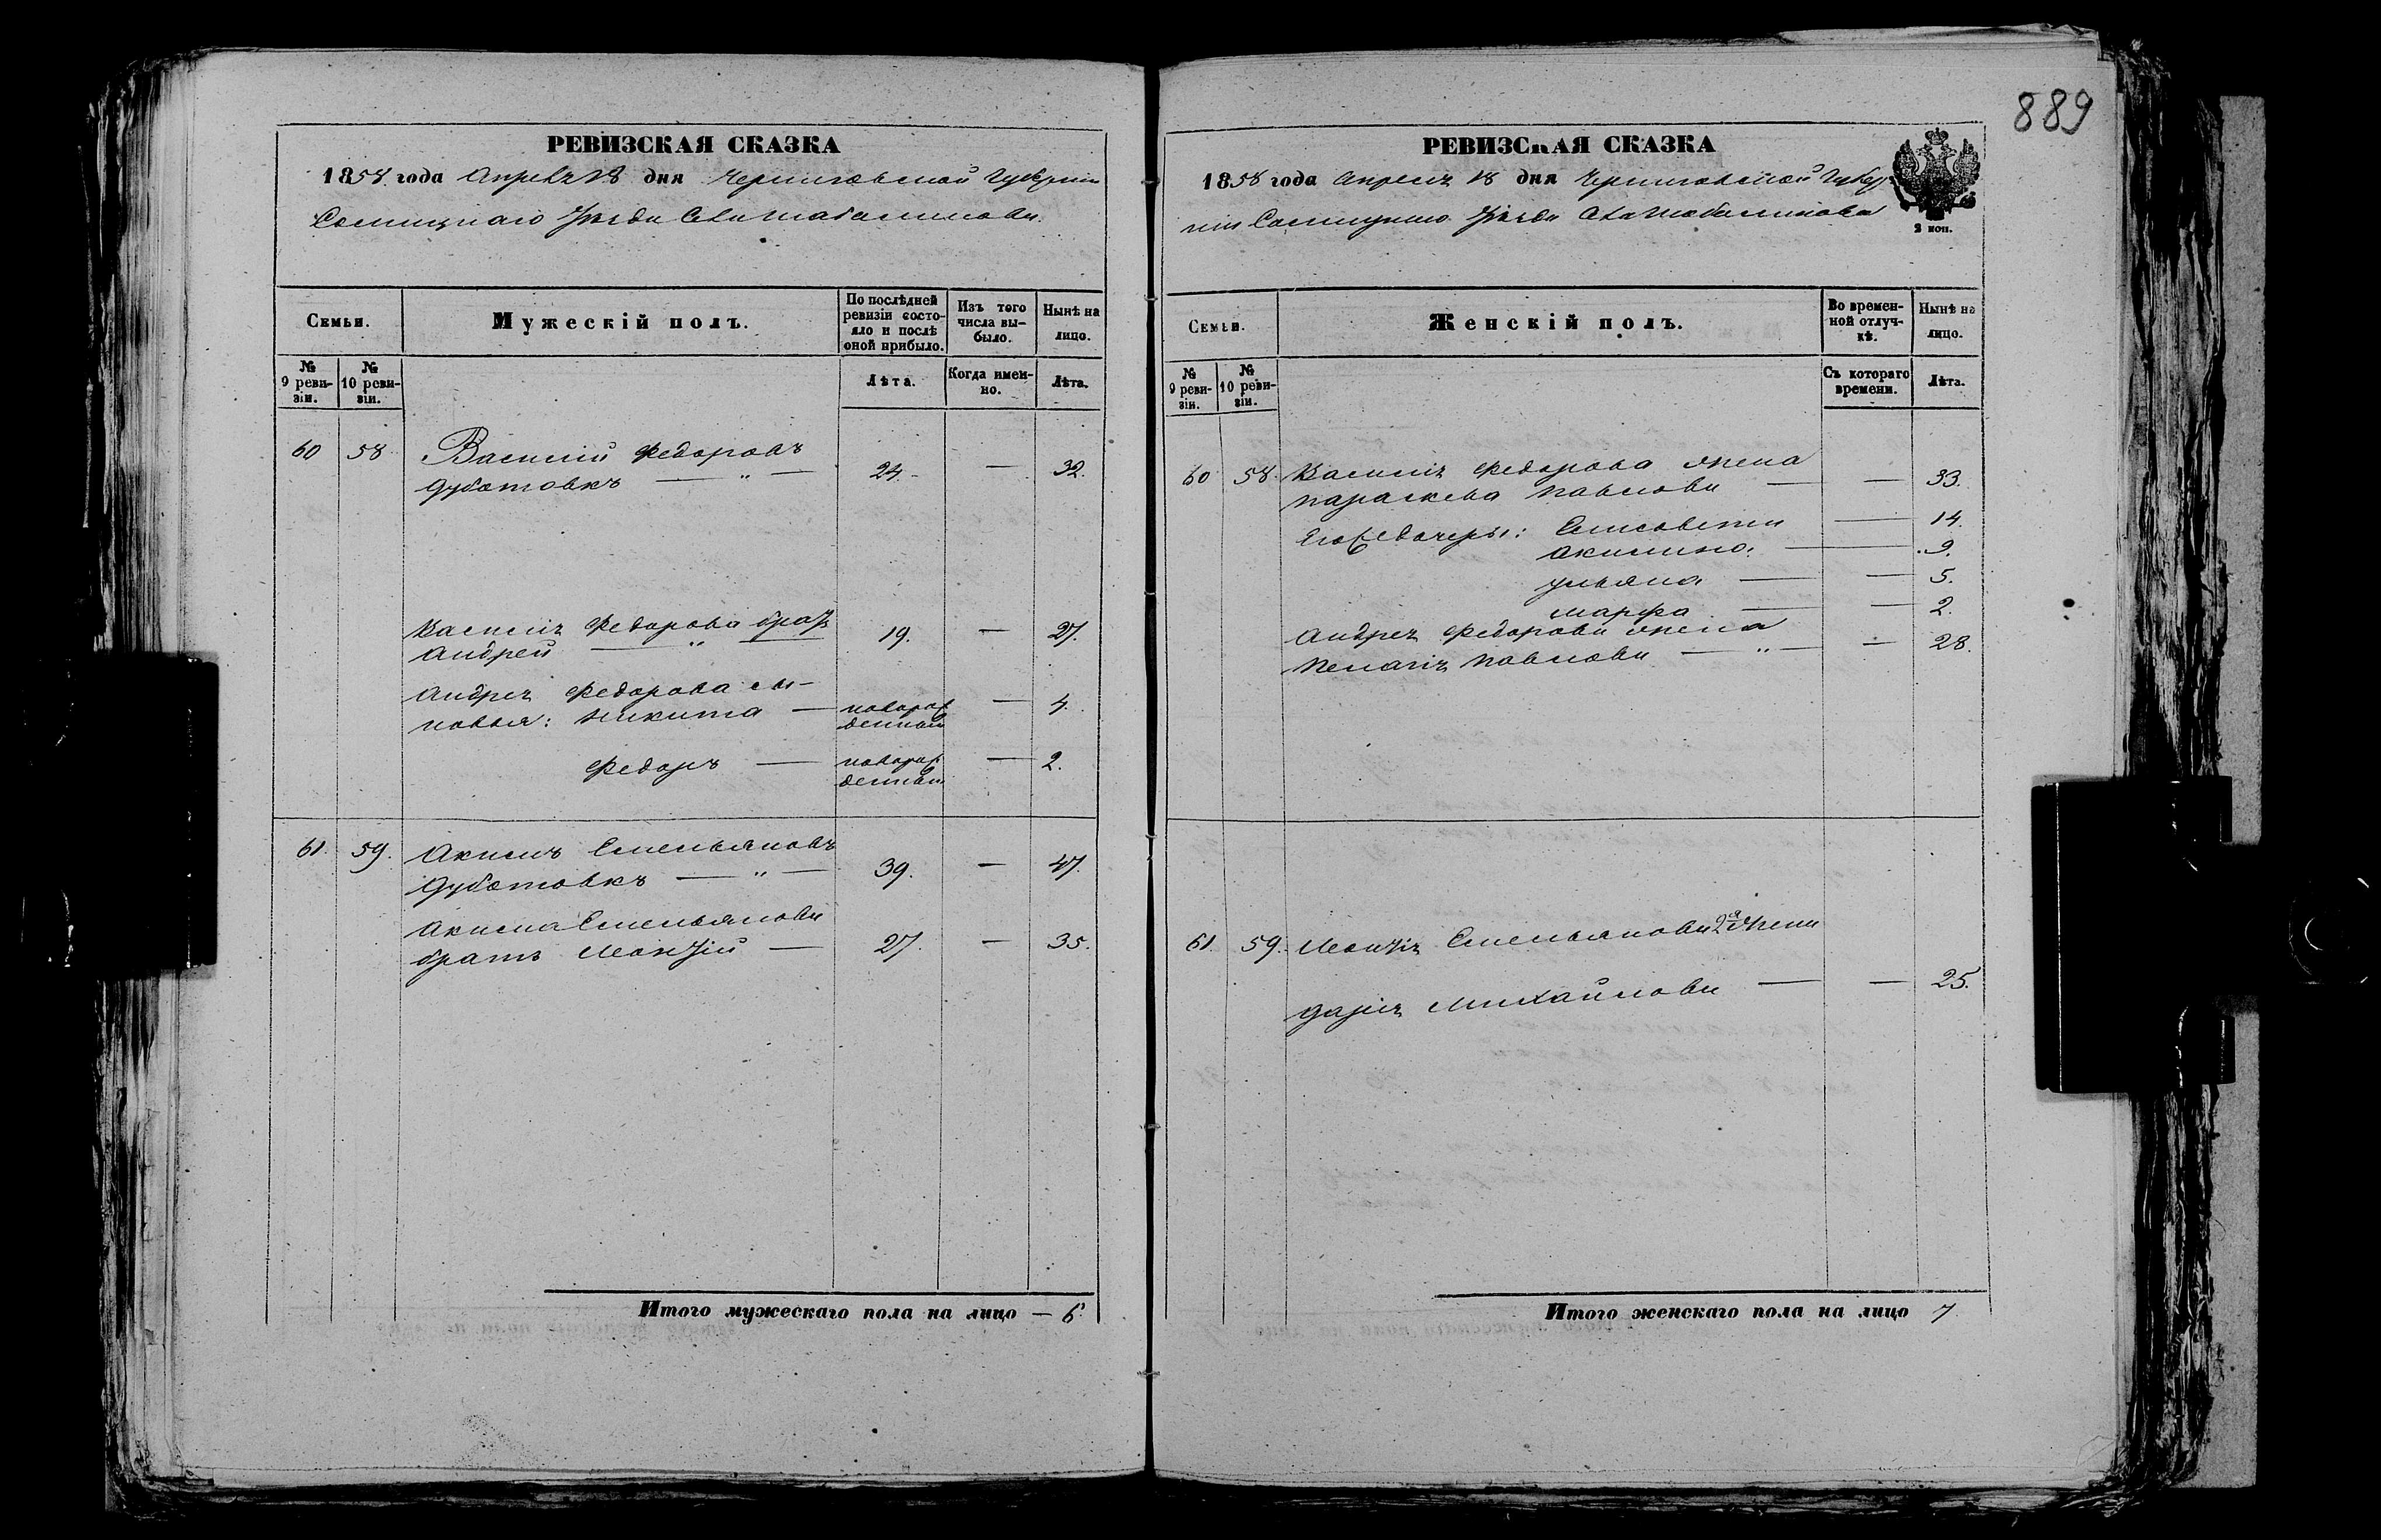 889
РЕВИЗСКАЯ СКАЗКА
1858 года Апреля 18 дня Черниговской Губернiи
Сосницкаго Уезда Села Шабалинова
Семьи.
Мужескiй полъ.
По послѣдней ревизiи состояло и послѣ оной прибыло.
Изъ того числа выбыло.
Нынѣ на лицо.
№ 9 ревизiи.
№ 10 ревизiи.
Лѣта.
Когда именно.
Лѣта.
60 58 Василiй Федоровъ
Дуботовкъ — " — 24. — 32.
Василiя Федорова братъ
Андрей — " 19. — 27.
Андрея Федорова сы-
новья: Никита — новорож
денный — 4.
Федоръ — новорож
денный — 2.
61. 59. Акимъ Емельяновъ
Дуботовкъ — " — 39. — 47.
Акима Емельянова
братъ — 27. — 35.
Итого мужескаго пола на лицо — 6
РЕВИЗСКАЯ СКАЗКА
1858 года Апреля 18 дня Черниговской Губер-
нiи Сосницкаго Уезда Села Шабалинова
2 коп.
Семьи.
Женскiй полъ.
Во временной отлучкѣ.
Нынѣ на лицо.
№ 9 ревизiи.
№ 10 ревизiи.
Съ котораго времени.
Лѣта.
60 58. Василiя Федорова жена
Параскева Павлова — — 33.
Его дочери: Елисовета — 14.
Акилина — 9.
Ульяна — — 5.
Марфа — — 2.
Андрея Федорова жена
Пелагiя Павлова — " — — 28.
61. 59. Емельянова 2я жена
Дарiя Михайлова — — 25.
Итого женскаго пола на лицо 7